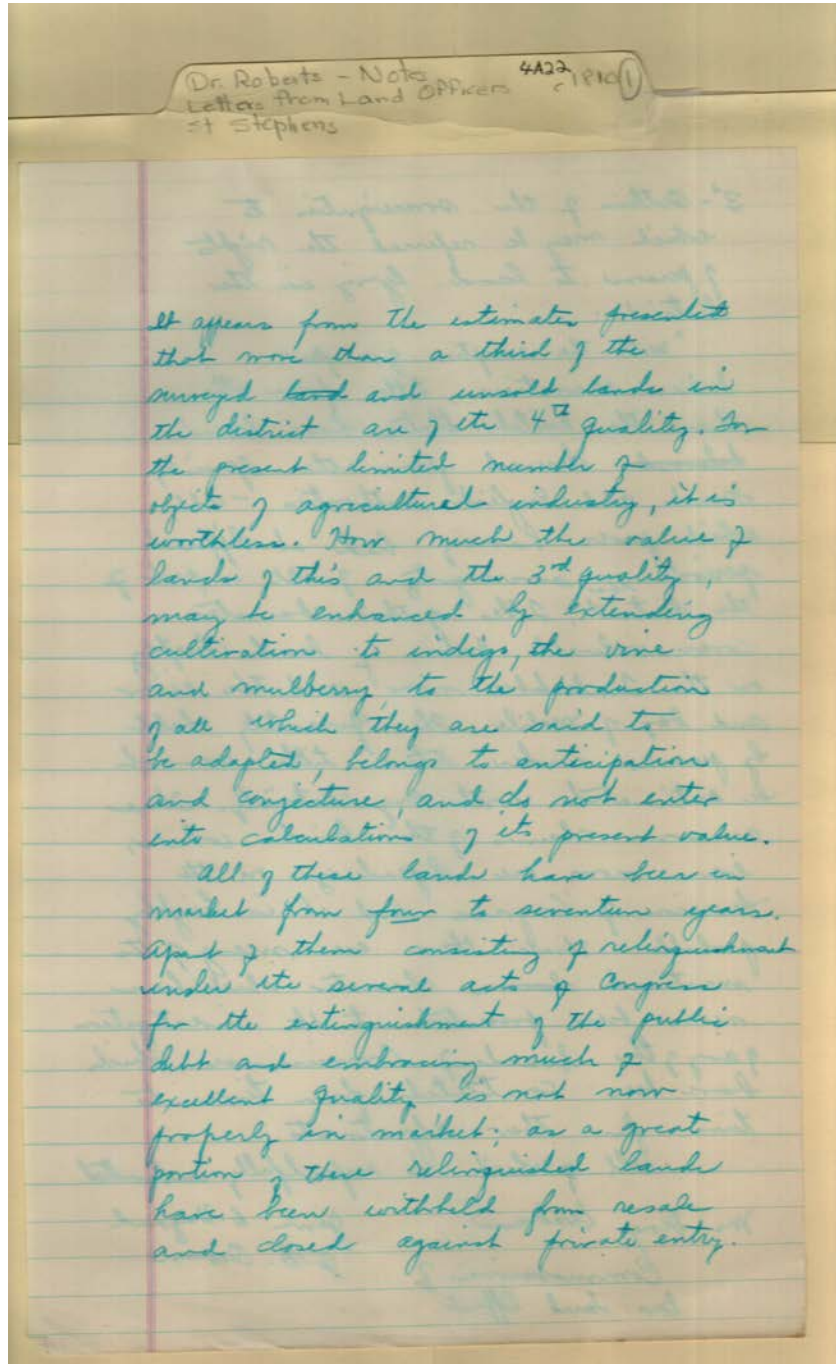 Dr. Roberts - Notes 4A22 c 1810 1
Letters from Land Officers
St Stephens
It appears from the estimates presented
that more than a third of the
surveyed land and unsold lands in
the district are of the 4th quality. For
the present limited number of
objects of agricultural industry, it is
worthless. How much the value of
lands of this and the 3rd quality,
may be enhanced by extending
cultivation to indigo, the vine
and mulberry, to the production
of all which they are said to
be adapted, belongs to anticipation
and conjecture, and do not enter
into calculations of its present value.
All of these lands have been in
market from four to seventeen years.
Apart of them consisting of relinquishment
under the several acts of Congress
for the extinguishment of the public
debt and embracing much of
excellent quality is not now
properly in market; as a great
portion of these relinquished lands
have been withheld from resale
and closed against private entry.